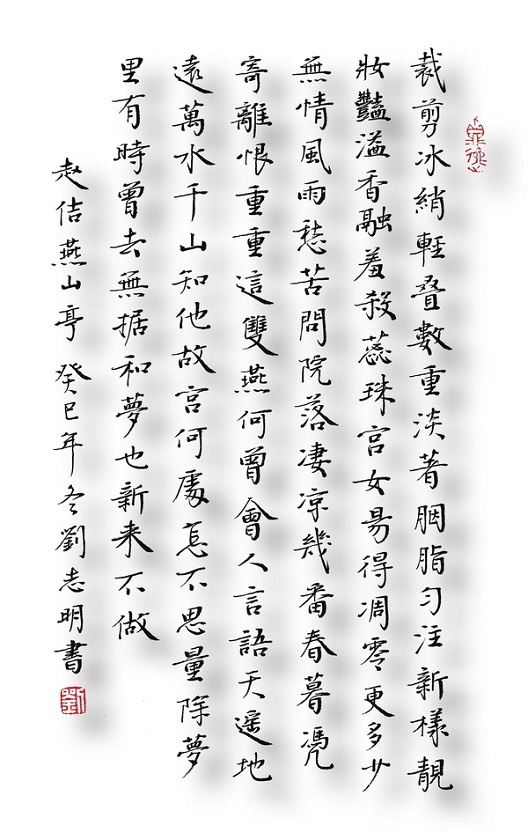 裁剪冰綃輕叠數重淡著胭脂匀注新樣靚
妝豔溢香融羞殺蕊珠宮女易得凋零更多少
無情風雨愁苦問院落凄凉幾番春暮凴
寄離恨重重這雙燕何曾會人言語天遥地
遠萬水千山知他故宮何處怎不思量除夢
里有時曾去無据和夢也新来不做
赵佶燕山亭 癸巳年冬劉志明書
劉